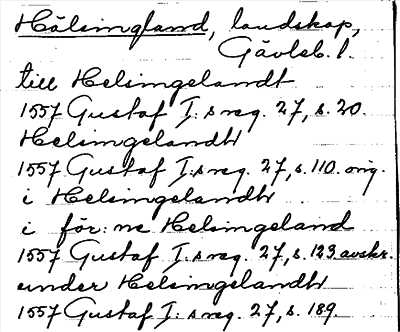 Hälsingland, landskap,
Gävleb. l.
till Helsingelandt
1557 Gustaf I:s reg. 27, s. 20.
Helsingelandh
1557 Gustaf I:s reg. 27, s. 110. orig.
i Helsingelandh
i för:ne Helsingeland
1557 Gustaf I:s reg. 27, s. 123 avskr.
under Helsingelandh
1557 Gustaf I:s reg. 27, s. 189.